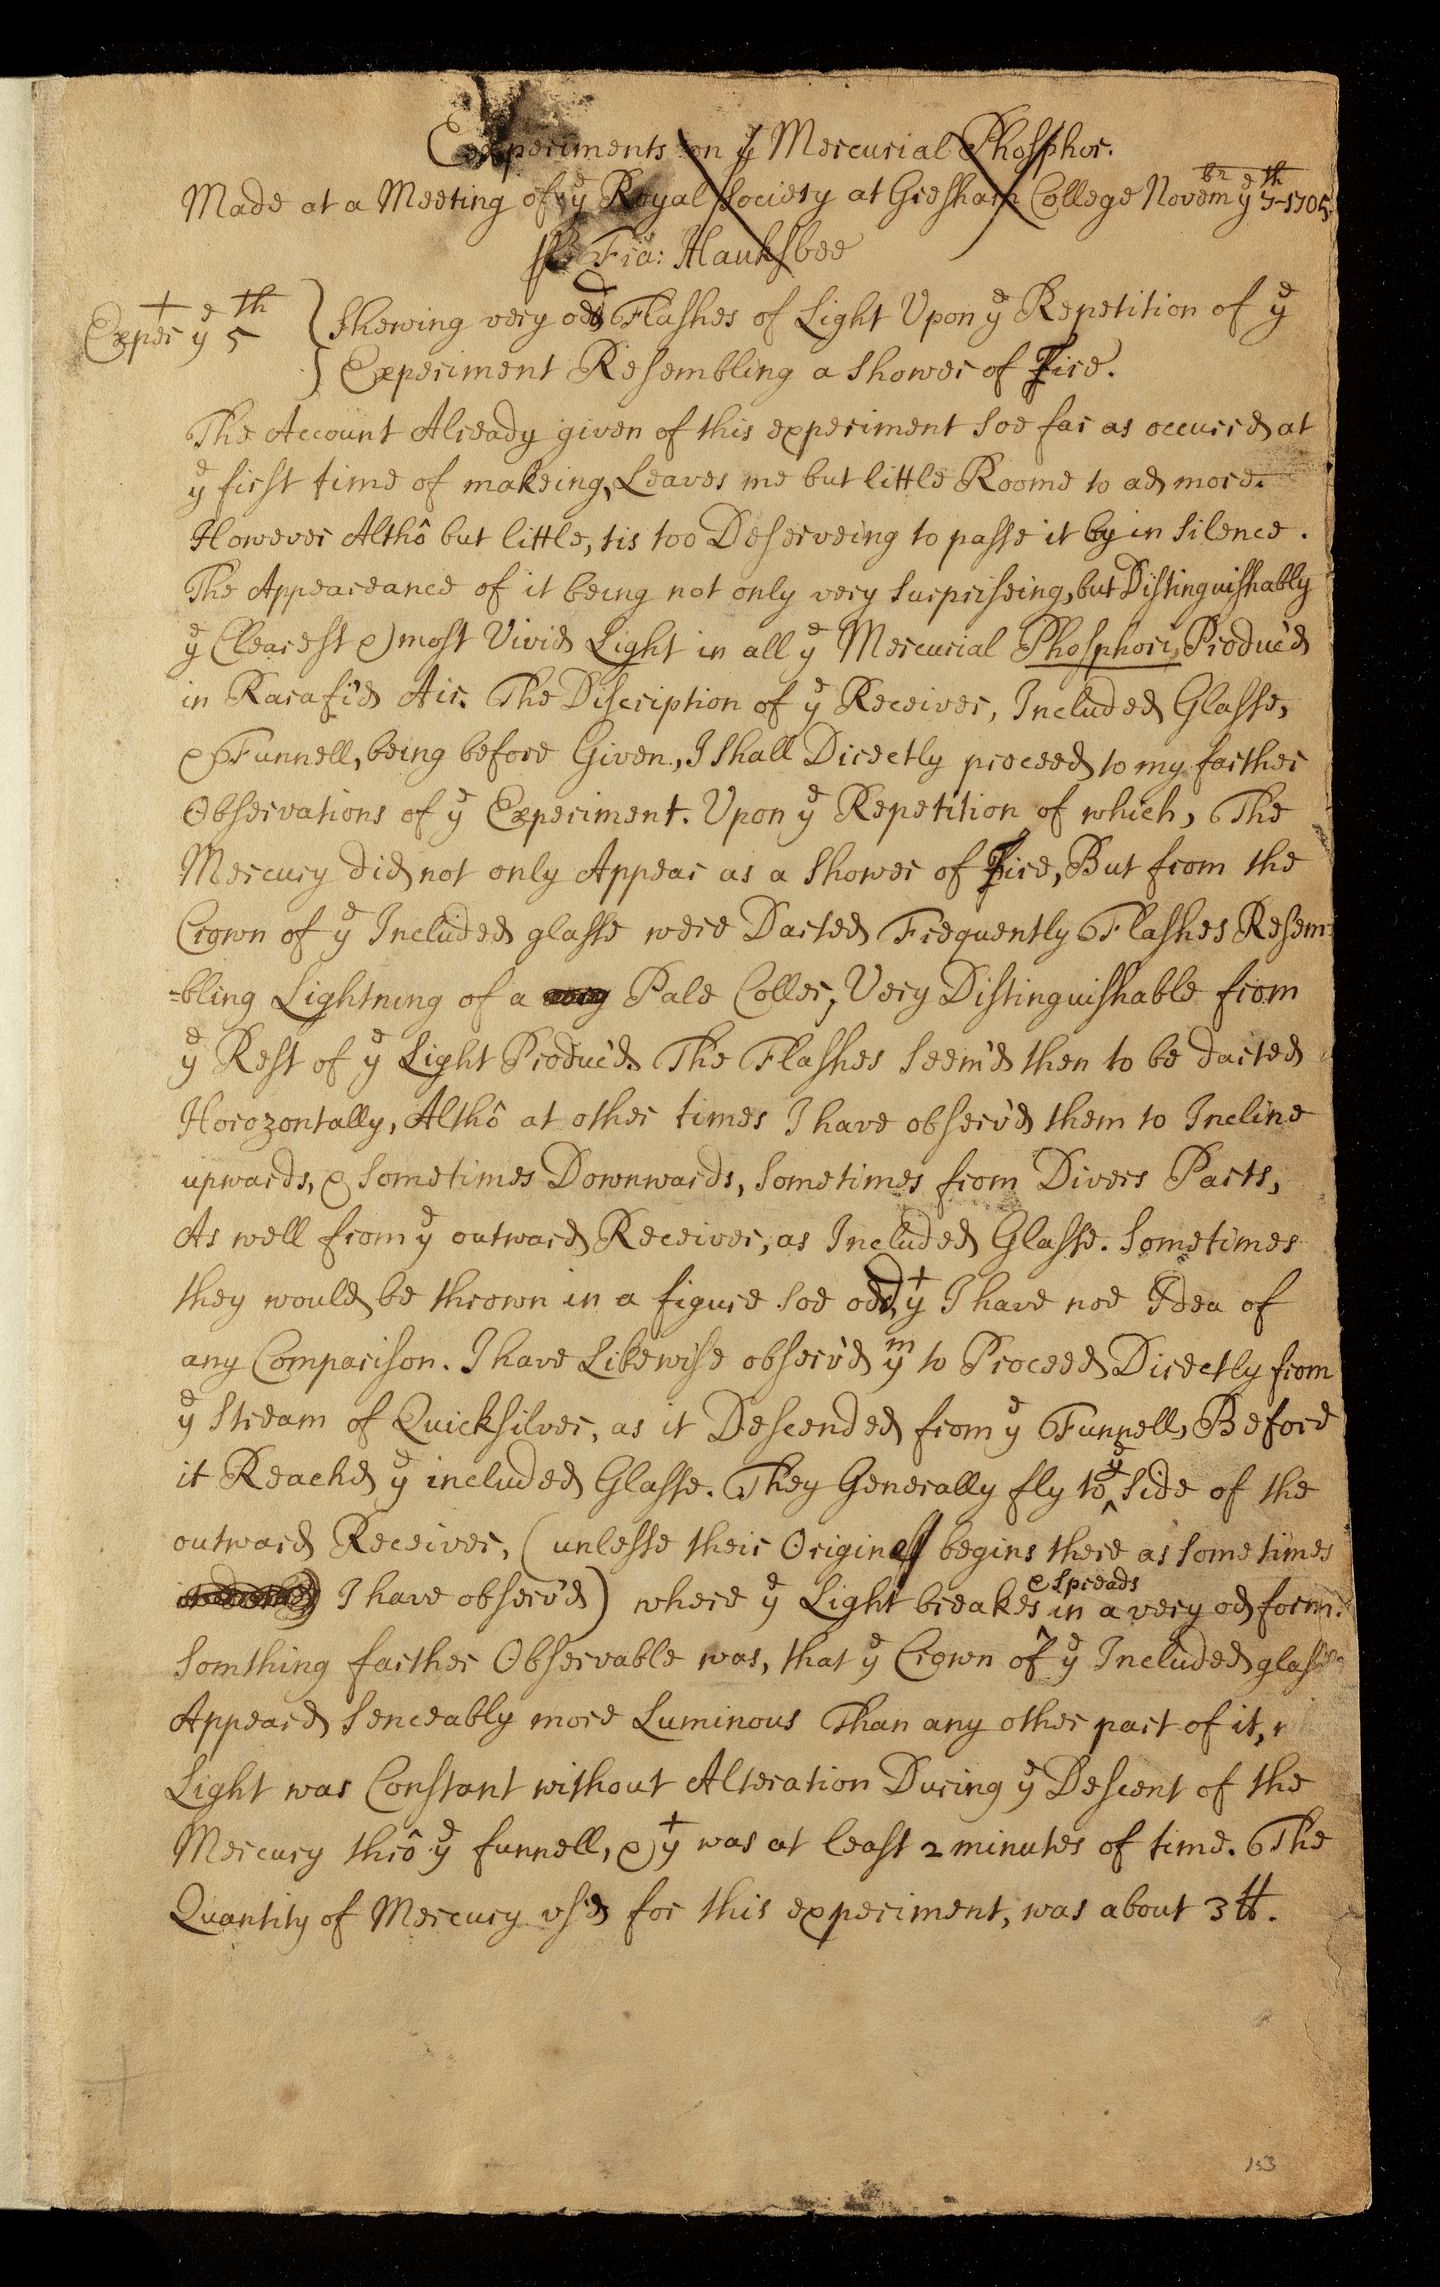 Experiments on yᵉ Mercurial Phosphor.
Made at a Meeting of yᵉ Royal Society at Gresham College Novembʳ yᵉ 7ᵗʰ 1705
Fra: Hauksbee
Experᵗ yᵉ 5ᵗʰ
Shewing very odd Flashes of Light Upon yᵉ Repetition of yᵉ
Experiment Resembling a Shower of Fire.
The Account Already given of this experiment soe far as occurred at
yᵉ first time of makeing, Leaves me but little Roome to ad more.
However Althô but little, tis too Deserveing to passe it by in Silence.
The Appeareance of it being not only very Surpriseing, but Distinguishably
yᵉ Clearest & most Vivid Light in all yᵉ Mercurial Phosphori, Produc'd
in Rarafi'd Air. The Discription of yᵉ Receiver, Included Glasse,
& Funnell, being before Given, I Shall Directly proceed to my farther
Observations of yᵉ Experiment. Upon yᵉ Repetition of which, The
Mercury did not only Appear as a Shower of Fire, But from the
Crown of yᵉ Included glasse were Darted Frequently Flashes Resem-
=bling Lightning of a very Pale Coller, Very Distinguishable from
yᵉ Rest of yᵉ Light Produc'd. The Flashes Seem'd then to be darted
Horozontally, Althô at other times I have observ'd them to Incline
upwards, & Sometimes Downwards, Sometimes from Divers Parts,
As well from yᵉ outward Receiver, as Included Glasse. Sometimes
they would be thrown in a figure Soe odd, yᵗ I have noe Idea of
any Comparison. I have Likewise observ'd yᵐ to Proceed Directly from
yᵉ Stream of Quicksilver, as it Descended from yᵉ Funnell, Before
it Reachd yᵉ included Glasse. They Generally fly to yᵉ Side of the
outward Receiver, (unlesse their Origin begins there as Some times
I have observ'd) where yᵉ Light breakes & Spreads in a very od form.
Somthing farther Observable was, that yᵉ Crown of yᵉ Included glasse
Appeard Senceably more Luminous Than any other part of it,
Light was Constant without Alteration During yᵉ Descent of the
Mercury thrô yᵉ funnell, & yᵗ was at least 2 minutes of time. The
Quantity of Mercury us'd for this experiment, was about 3 ℔.
153